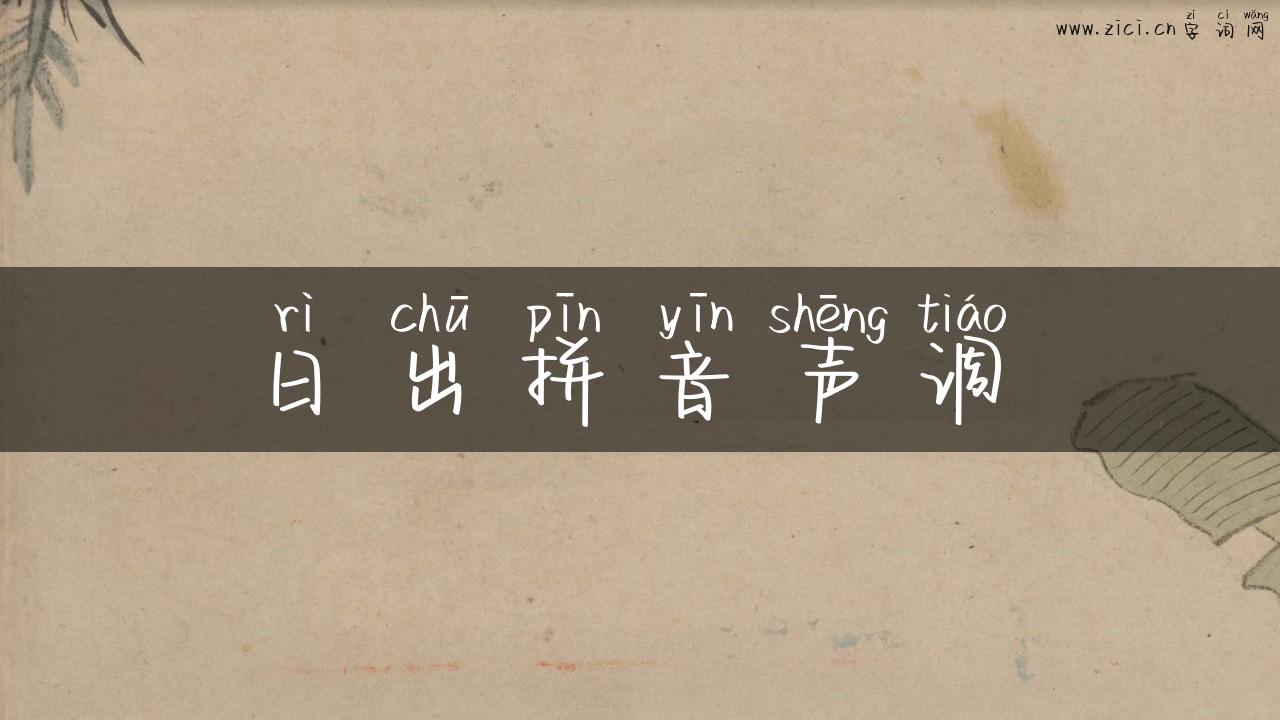 zì cí wǎng
www.zici.cn 字词网
rì chū pīn yīn shēng tiáo
日出拼音声调